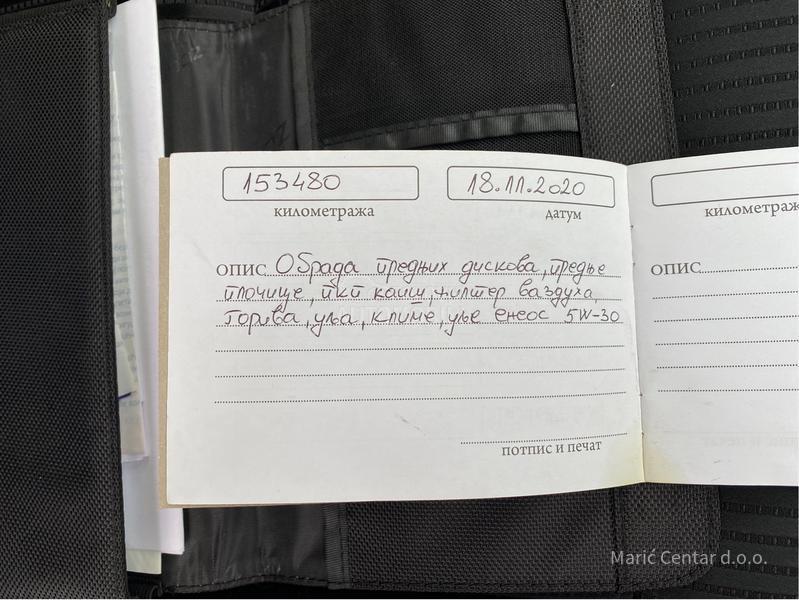 153480
18.11.2020
километража
датум
километраж
опис Обрада предњих дискова, предње
плочице, пкп каиш, филтер ваздуха,
горива, уља, климе, уље енеос 5W-30
опис
потпис и печат
Marić Centar d.o.o.